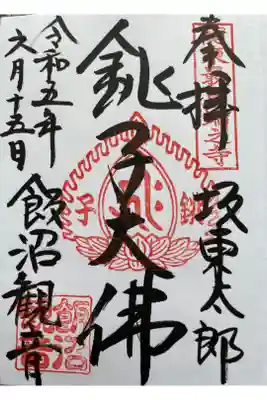 奉拝
坂東太郎
銚子大佛
銚
子
令和五年
六月十五日
飯沼観音